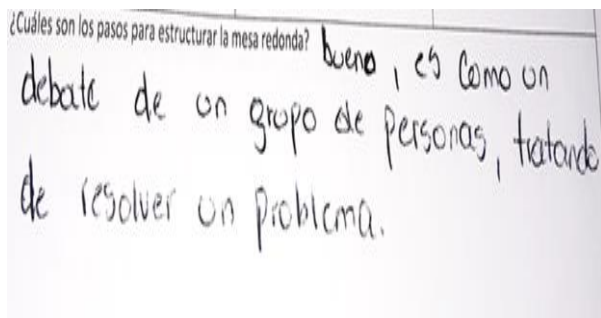 ¿Cuáles son los pasos para estructurar la mesa redonda? bueno, es como un
debate de un grupo de personas, tratando
de resolver un problema.